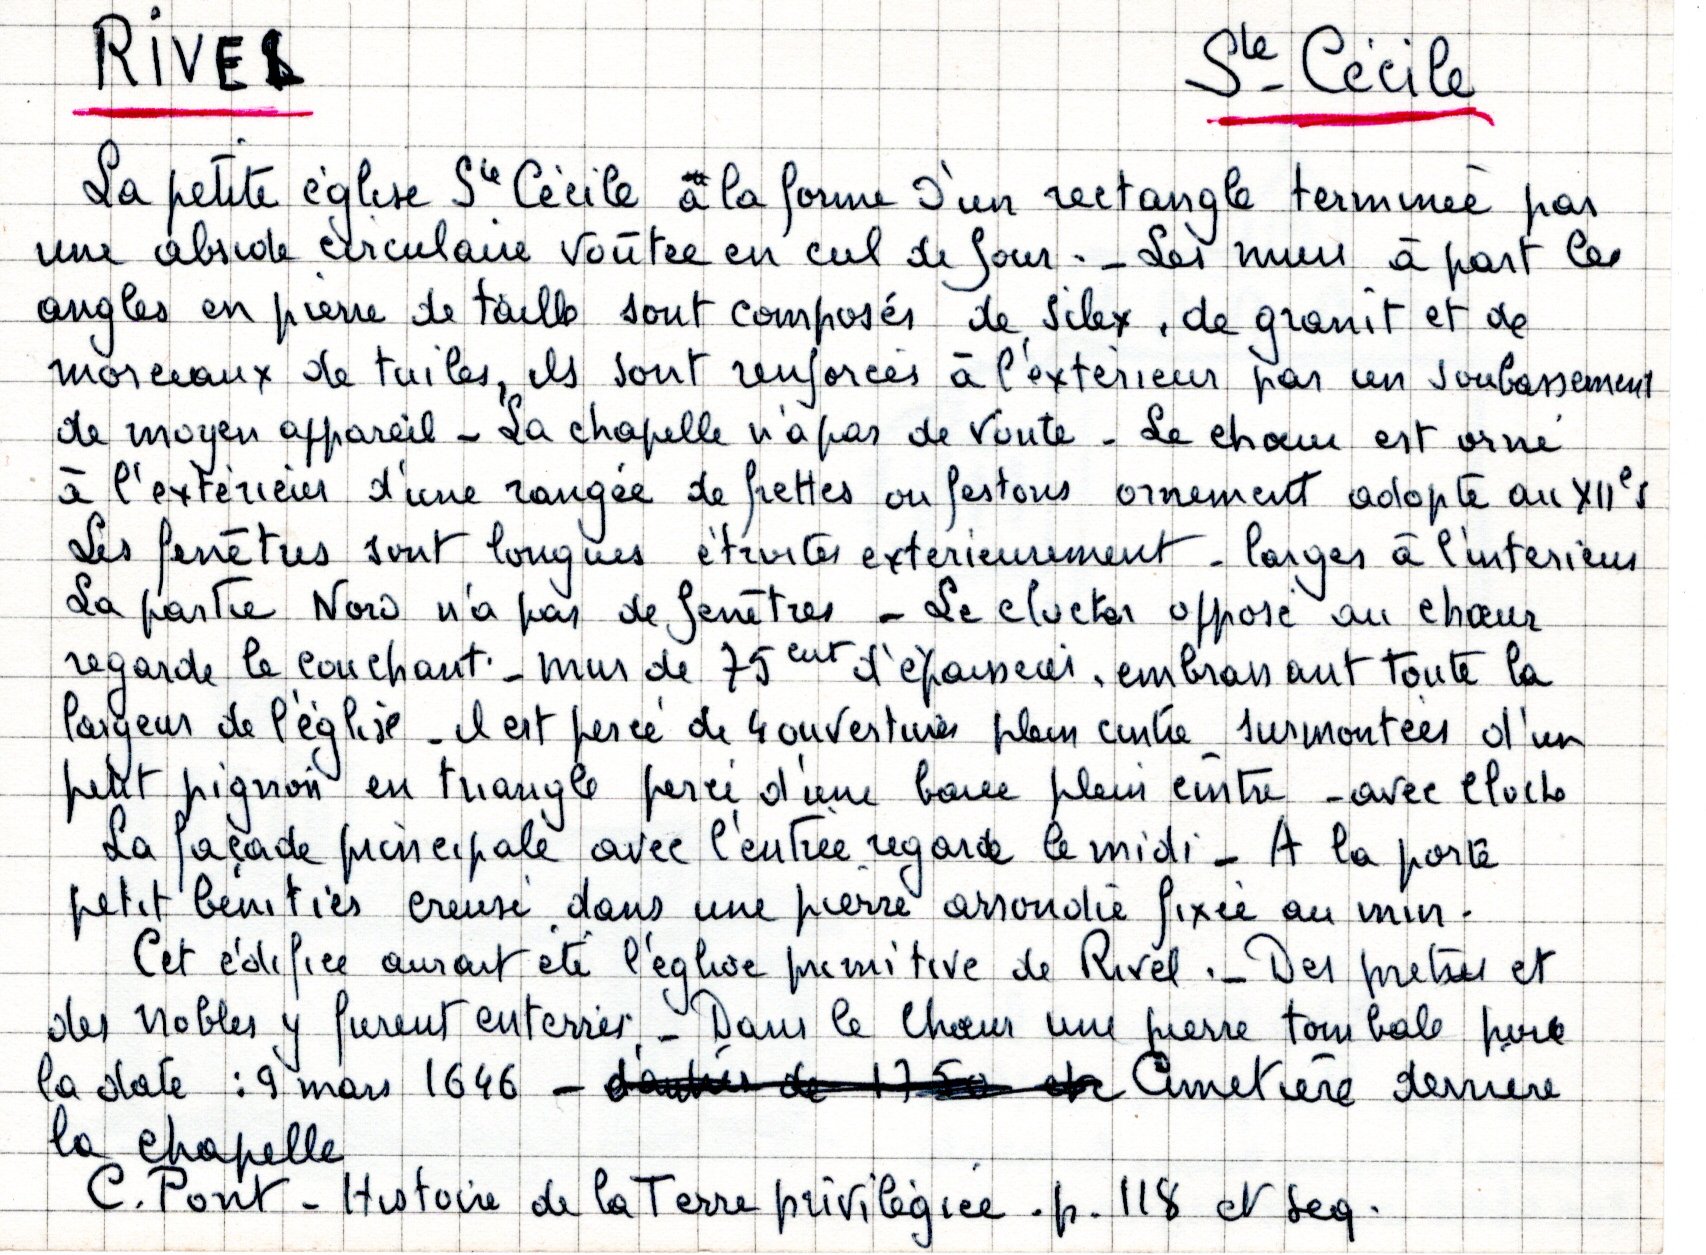 RIVEL Ste Cécile
La petite église Ste Cécile a la forme d'un rectangle terminée par
une abside circulaire voûtée en cul de four. - Les murs à part les
angles en pierre de taille sont composés de silex, de granit et de
morceaux de tuiles, ils sont renforcés à l'extérieur par un soubassement
de moyen appareil - La chapelle n'a pas de voute - Le choeur est orné
à l'extérieur d'une rangée de frettes ou festons ornement adopté au XIIe s
Les fenêtres sont longues étroites exterieurement - larges à l'interieur
La partie Nord n'a pas de fenêtres - Le clocher opposé au chœur
regarde le couchant - mur de 75 cent d'épaisseur, embrassant toute la
largeur de l'église - il est percé de 4 ouvertures plein cintre surmontées d'un
petit pignon en triangle percé d'une baie plein cintre - avec cloche
La façade principale avec l'entrée regarde le midi - A la porte
petit bénitier creusé dans une pierre arrondie fixée au mur.
Cet édifice aurait été l'église primitive de Rivel. - Des pretres et
des nobles y furent enterrés, - Dans le Chœur une pierre tombale porte
la date : 9 mars 1646 - Cimetière derriere
la chapelle
C. Pont - Histoire de la Terre privilégiée. p. 118 et seq.